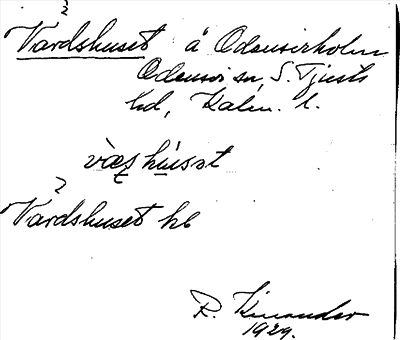 Värdshuset å Odensviholm
Odensvi sn, S. Tjusts
hd, Kalm. l.
Värdshuset hb
R. Kinander
1929.